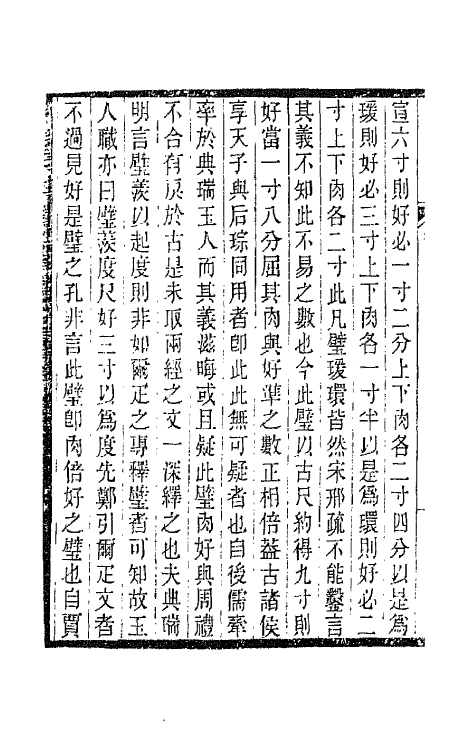 宣六寸則好必一寸二分上下肉各二寸四分以是為
瑗則好必三寸上下肉各一寸半以是爲環則好必二
寸上下肉各二寸此凡璧瑗環皆然宋邢疏不能鑿言
其義不知此不易之數也今此璧以古尺約得九寸則
好當一寸八分屈其肉與好準之數正相倍葢古諸侯
享天子與后琮同用者卽此此無可疑者也自後儒牽
率於典瑞玉人而其義滋晦或且疑此璧肉好與周禮
不合有戾於古是未取兩經之文一深繹之也夫典瑞
明言璧羨以起度則非如爾疋之專釋璧者可知故玉
人職亦曰璧羨度尺好三寸以爲度先鄭引爾疋文者
不過見好是璧之孔非言此璧卽肉倍好之璧也自賈